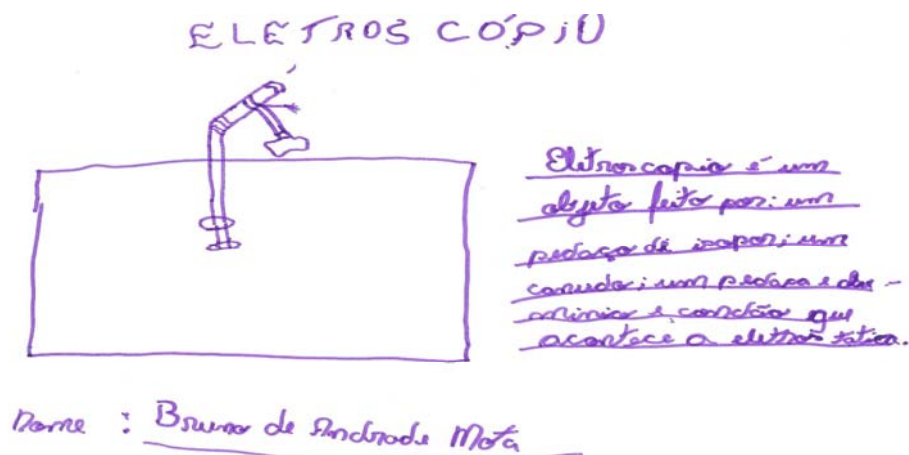 ELETROSCÓPIO
Eletroscopio é um
objeto feito por; um
pedaço de isopor; um
canudo; um pedaço e alu-
minio e, condão que
acontece a eletros tatica.
Nome : Bruno de Andrade Mota